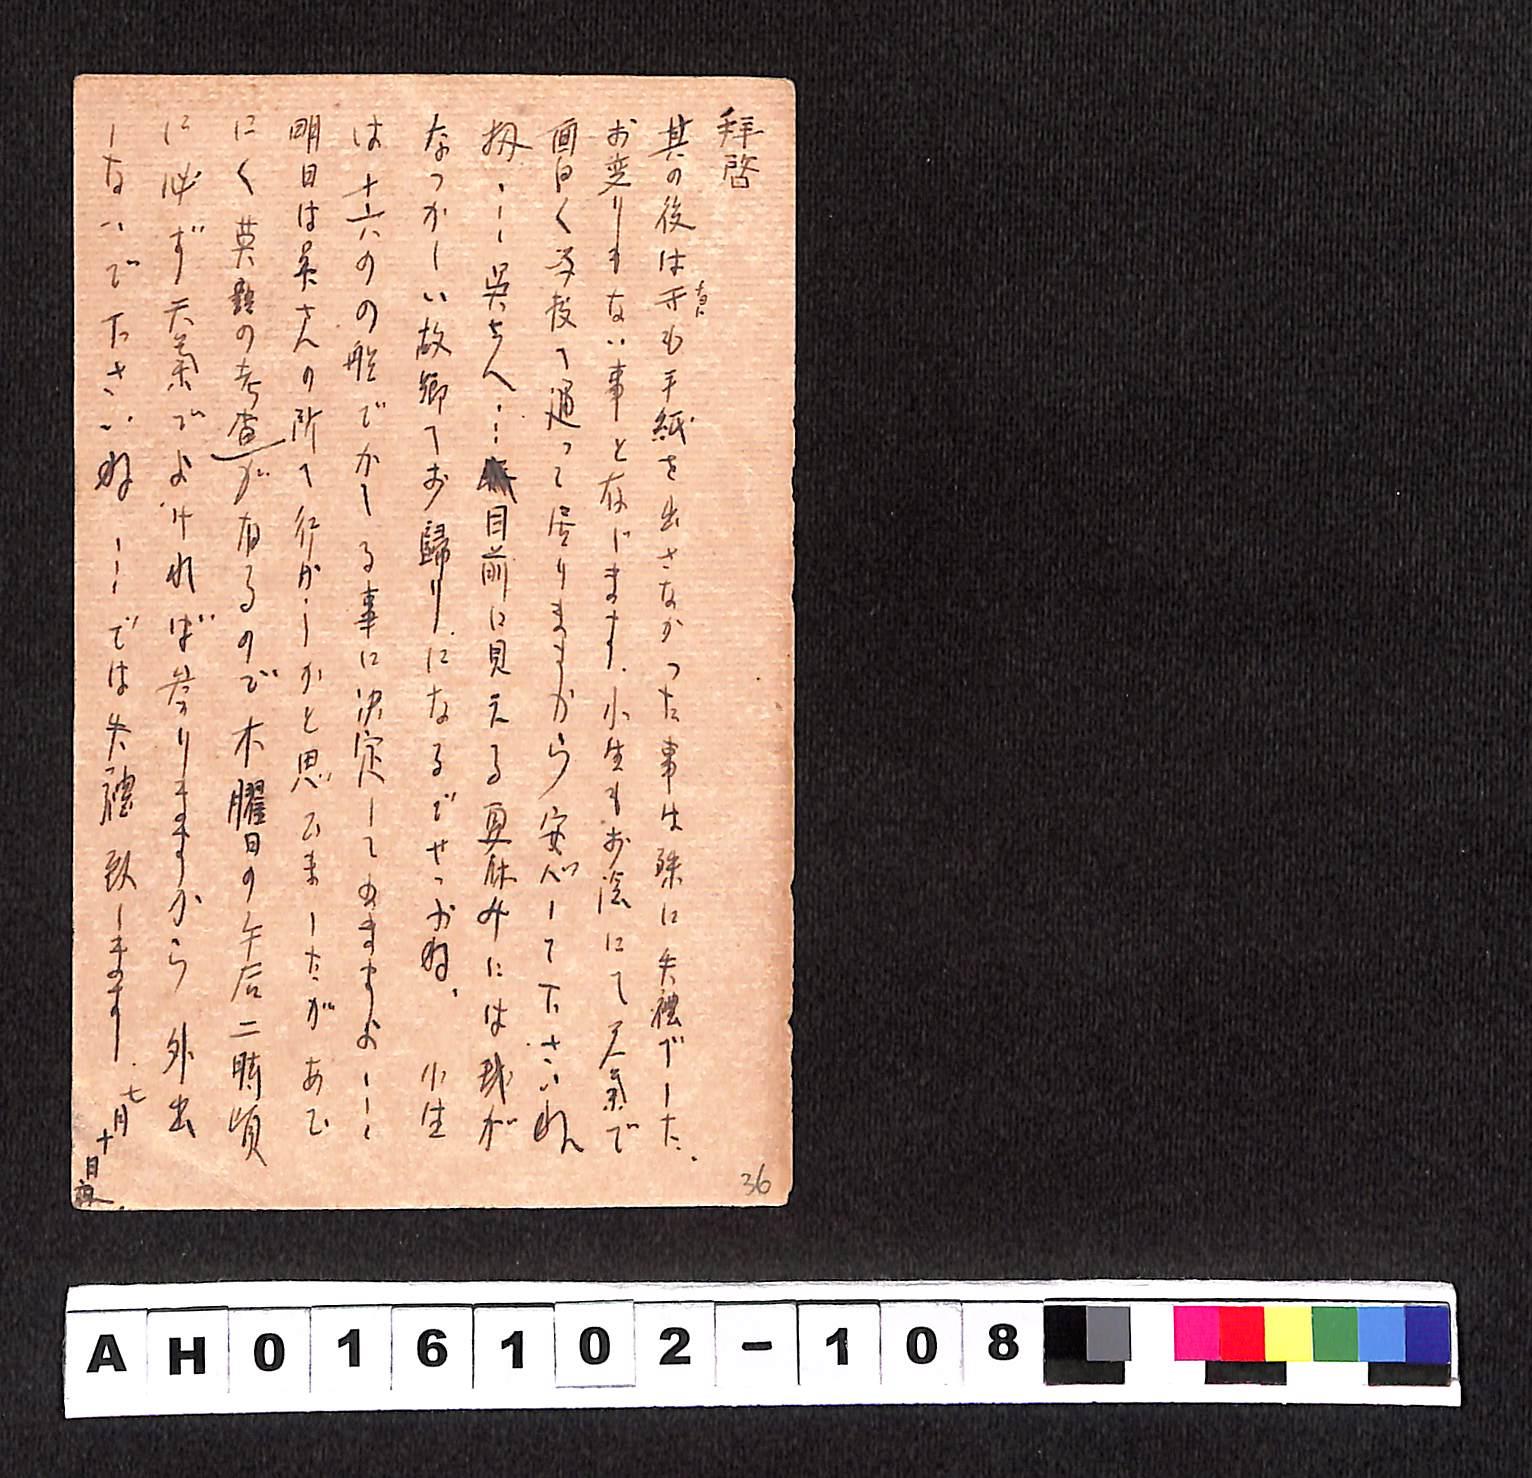 拝啓
其の後は才も手紙を出さなかった事は殊に失禮でした.
お変りもない事と存じます.小生もお陰にて元氣で
面白く学校へ通って居りますから安心して下さいねん
扨、――呉さん…目前に見える夏休みには我が
なつかしい故郷へお歸りになるでせうかね.小生
は十六のの船でかへる事に決定してゐますよ――
明日は呉さんの所へ行かうかと思ひましたがあひ
にく英語の考査が有るので木曜日の午后二時頃
に必ず天氣でよければ参りますから外出
しないで下さいね ――では失禮致します.
七月十日夜.
36
AH016102-108